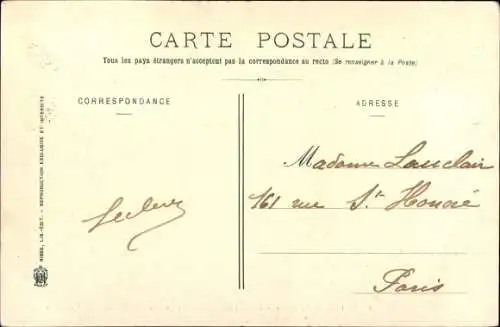 CARTE POSTALE
Tous les pays étrangers n'acceptent pas la correspondance au recto (Se renseigner à la Poste)
CORRESPONDANCE
ADRESSE
Madame Lauclair
161 rue St Honoré
Paris
Leclerc
LIB.-ÉDIT. - REPRODUCTION EXCLUSIVE ET INTERDITE